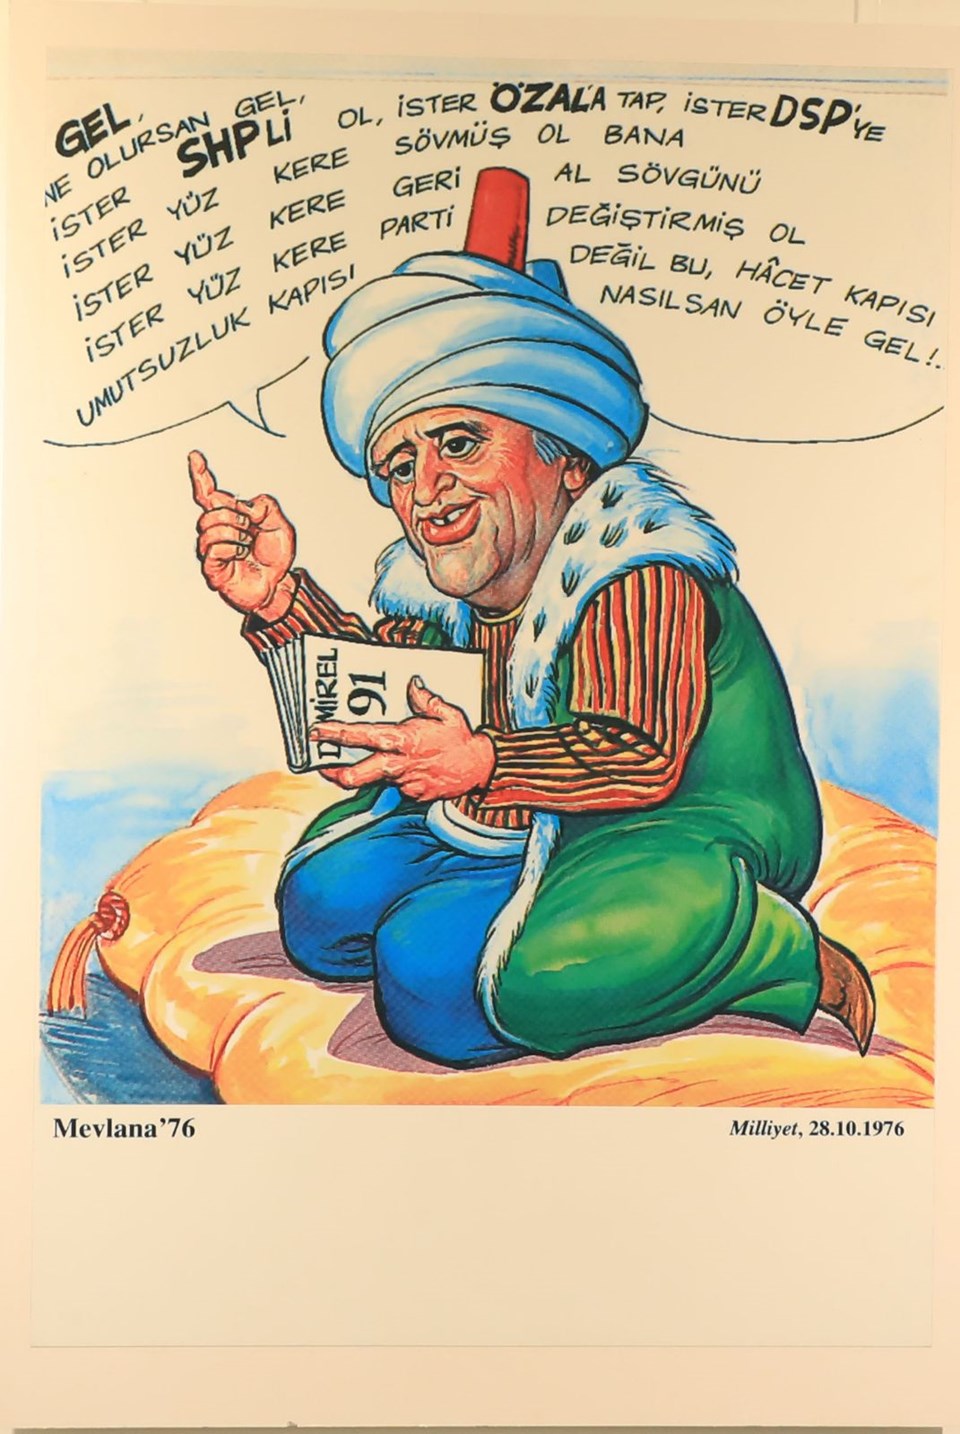 GEL,
NE OLURSAN GEL,
İSTER SHPLİ OL, İSTER ÖZAL'A TAP, İSTER DSP'YE
İSTER YÜZ KERE SÖVMÜŞ OL BANA
İSTER YÜZ KERE GERİ AL SÖVGÜNÜ
İSTER YÜZ KERE PARTİ DEĞİŞTİRMİŞ OL
UMUTSUZLUK KAPISI DEĞİL BU, HÂCET KAPISI
NASILSAN ÖYLE GEL!.
DEMİREL
91
Mevlana'76
Milliyet, 28.10.1976